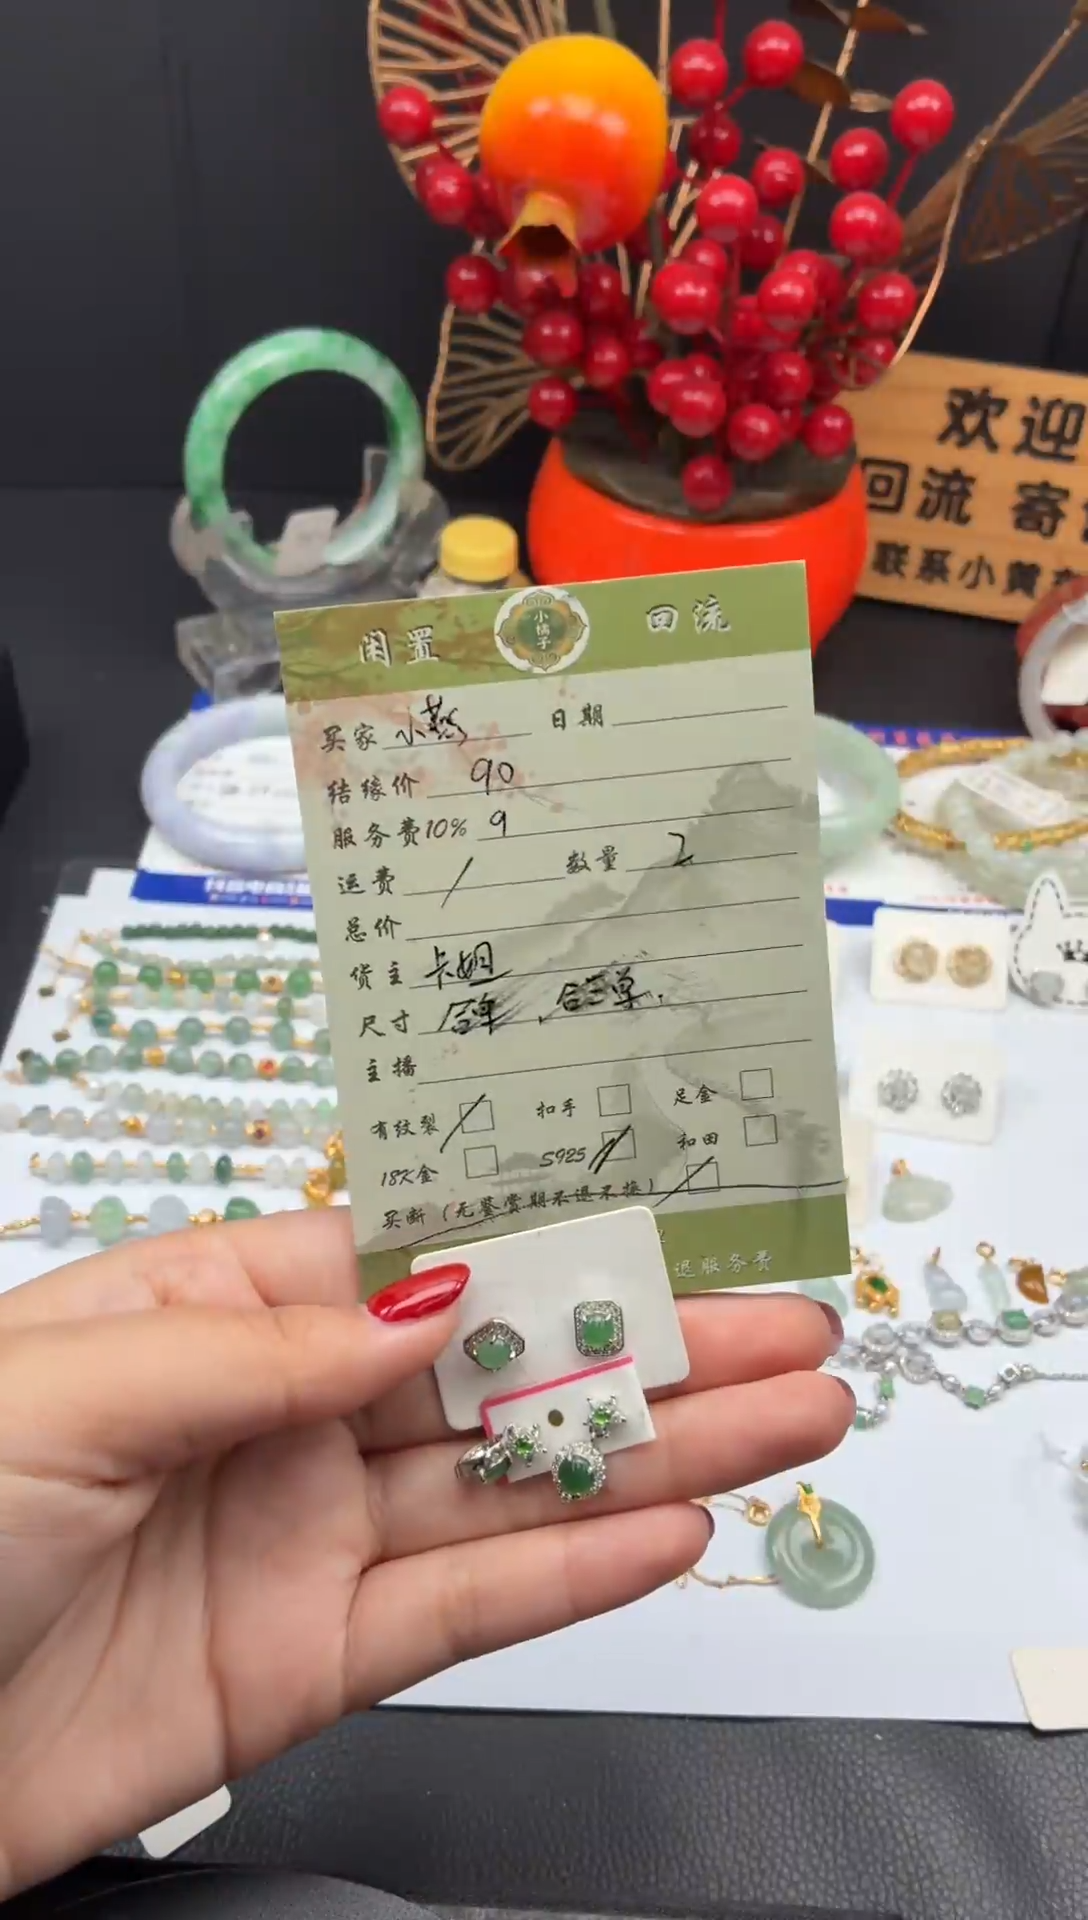 欢迎
回流 寄
联系小黄
闲置 小橘子 回流
买家 小燕 日期
结缘价 90
服务费10% 9
运费 / 数量 2
总价
货主 卡姐
尺寸 合单，合三单.
主播
有纹裂 扣手 足金
18K金 S925 和田
买断（无鉴赏期不退不换）
退服务费